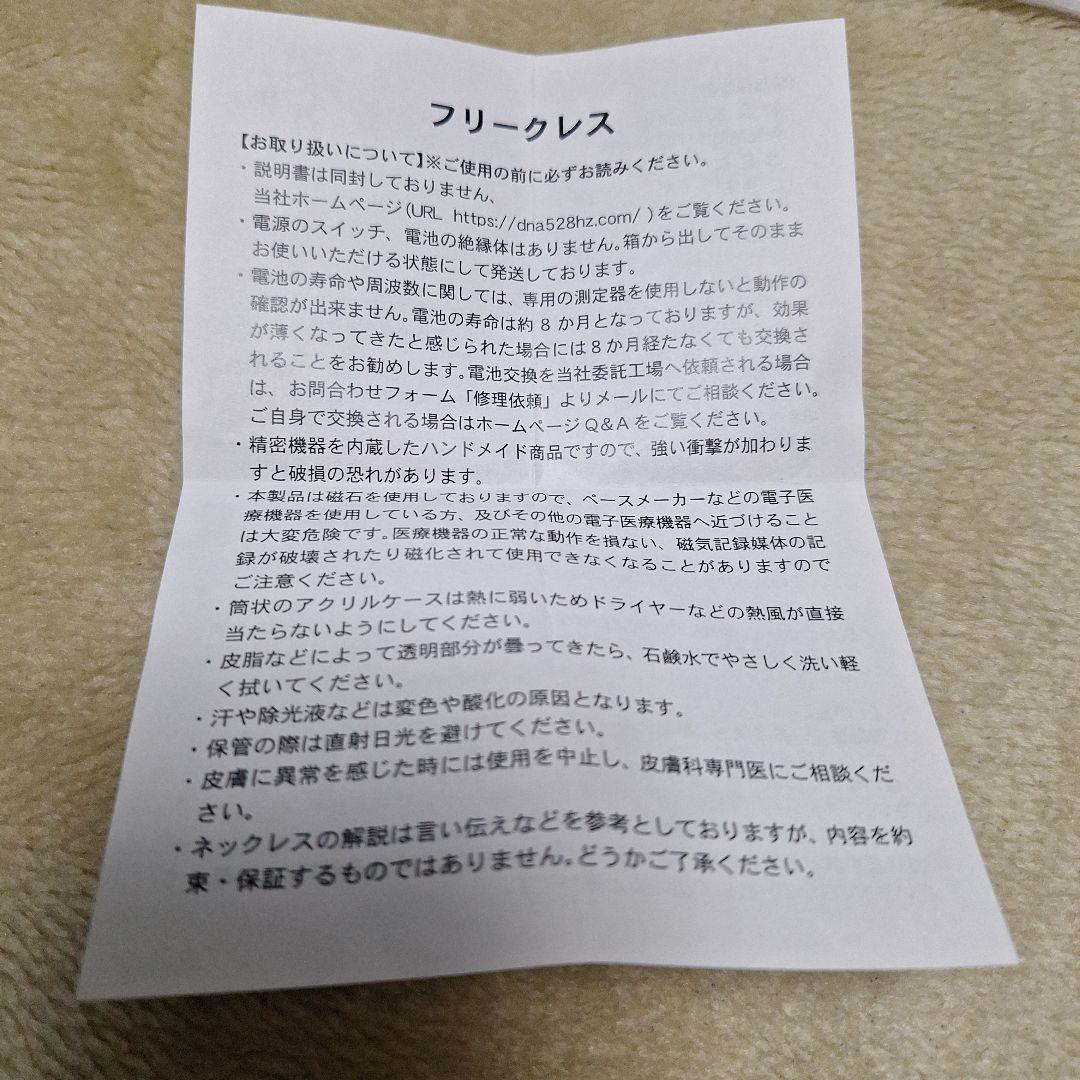 フリークレス
【お取り扱いについて】※ご使用の前に必ずお読みください。
・説明書は同封しておりません、
当社ホームページ(URL https://dna528hz.com/ )をご覧ください。
・電源のスイッチ、電池の絶縁体はありません。箱から出してそのまま
お使いいただける状態にして発送しております。
・電池の寿命や周波数に関しては、専用の測定器を使用しないと動作の
確認が出来ません。電池の寿命は約 8 か月となっておりますが、効果
が薄くなってきたと感じられた場合には8か月経たなくても交換さ
れることをお勧めします。電池交換を当社委託工場へ依頼される場合
は、お問合わせフォーム「修理依頼」よりメールにてご相談ください。
ご自身で交換される場合はホームページQ&Aをご覧ください。
・精密機器を内蔵したハンドメイド商品ですので、強い衝撃が加わりま
すと破損の恐れがあります。
・本製品は磁石を使用しておりますので、ペースメーカーなどの電子医
療機器を使用している方、及びその他の電子医療機器へ近づけること
は大変危険です。医療機器の正常な動作を損ない、磁気記録媒体の記
録が破壊されたり磁化されて使用できなくなることがありますので
ご注意ください。
・筒状のアクリルケースは熱に弱いためドライヤーなどの熱風が直接
当たらないようにしてください。
・皮脂などによって透明部分が曇ってきたら、石鹸水でやさしく洗い軽
く拭いてください。
・汗や除光液などは変色や酸化の原因となります。
・保管の際は直射日光を避けてください。
・皮膚に異常を感じた時には使用を中止し、皮膚科専門医にご相談くだ
さい。
・ネックレスの解説は言い伝えなどを参考としておりますが、内容を約
束・保証するものではありません。どうかご了承ください。